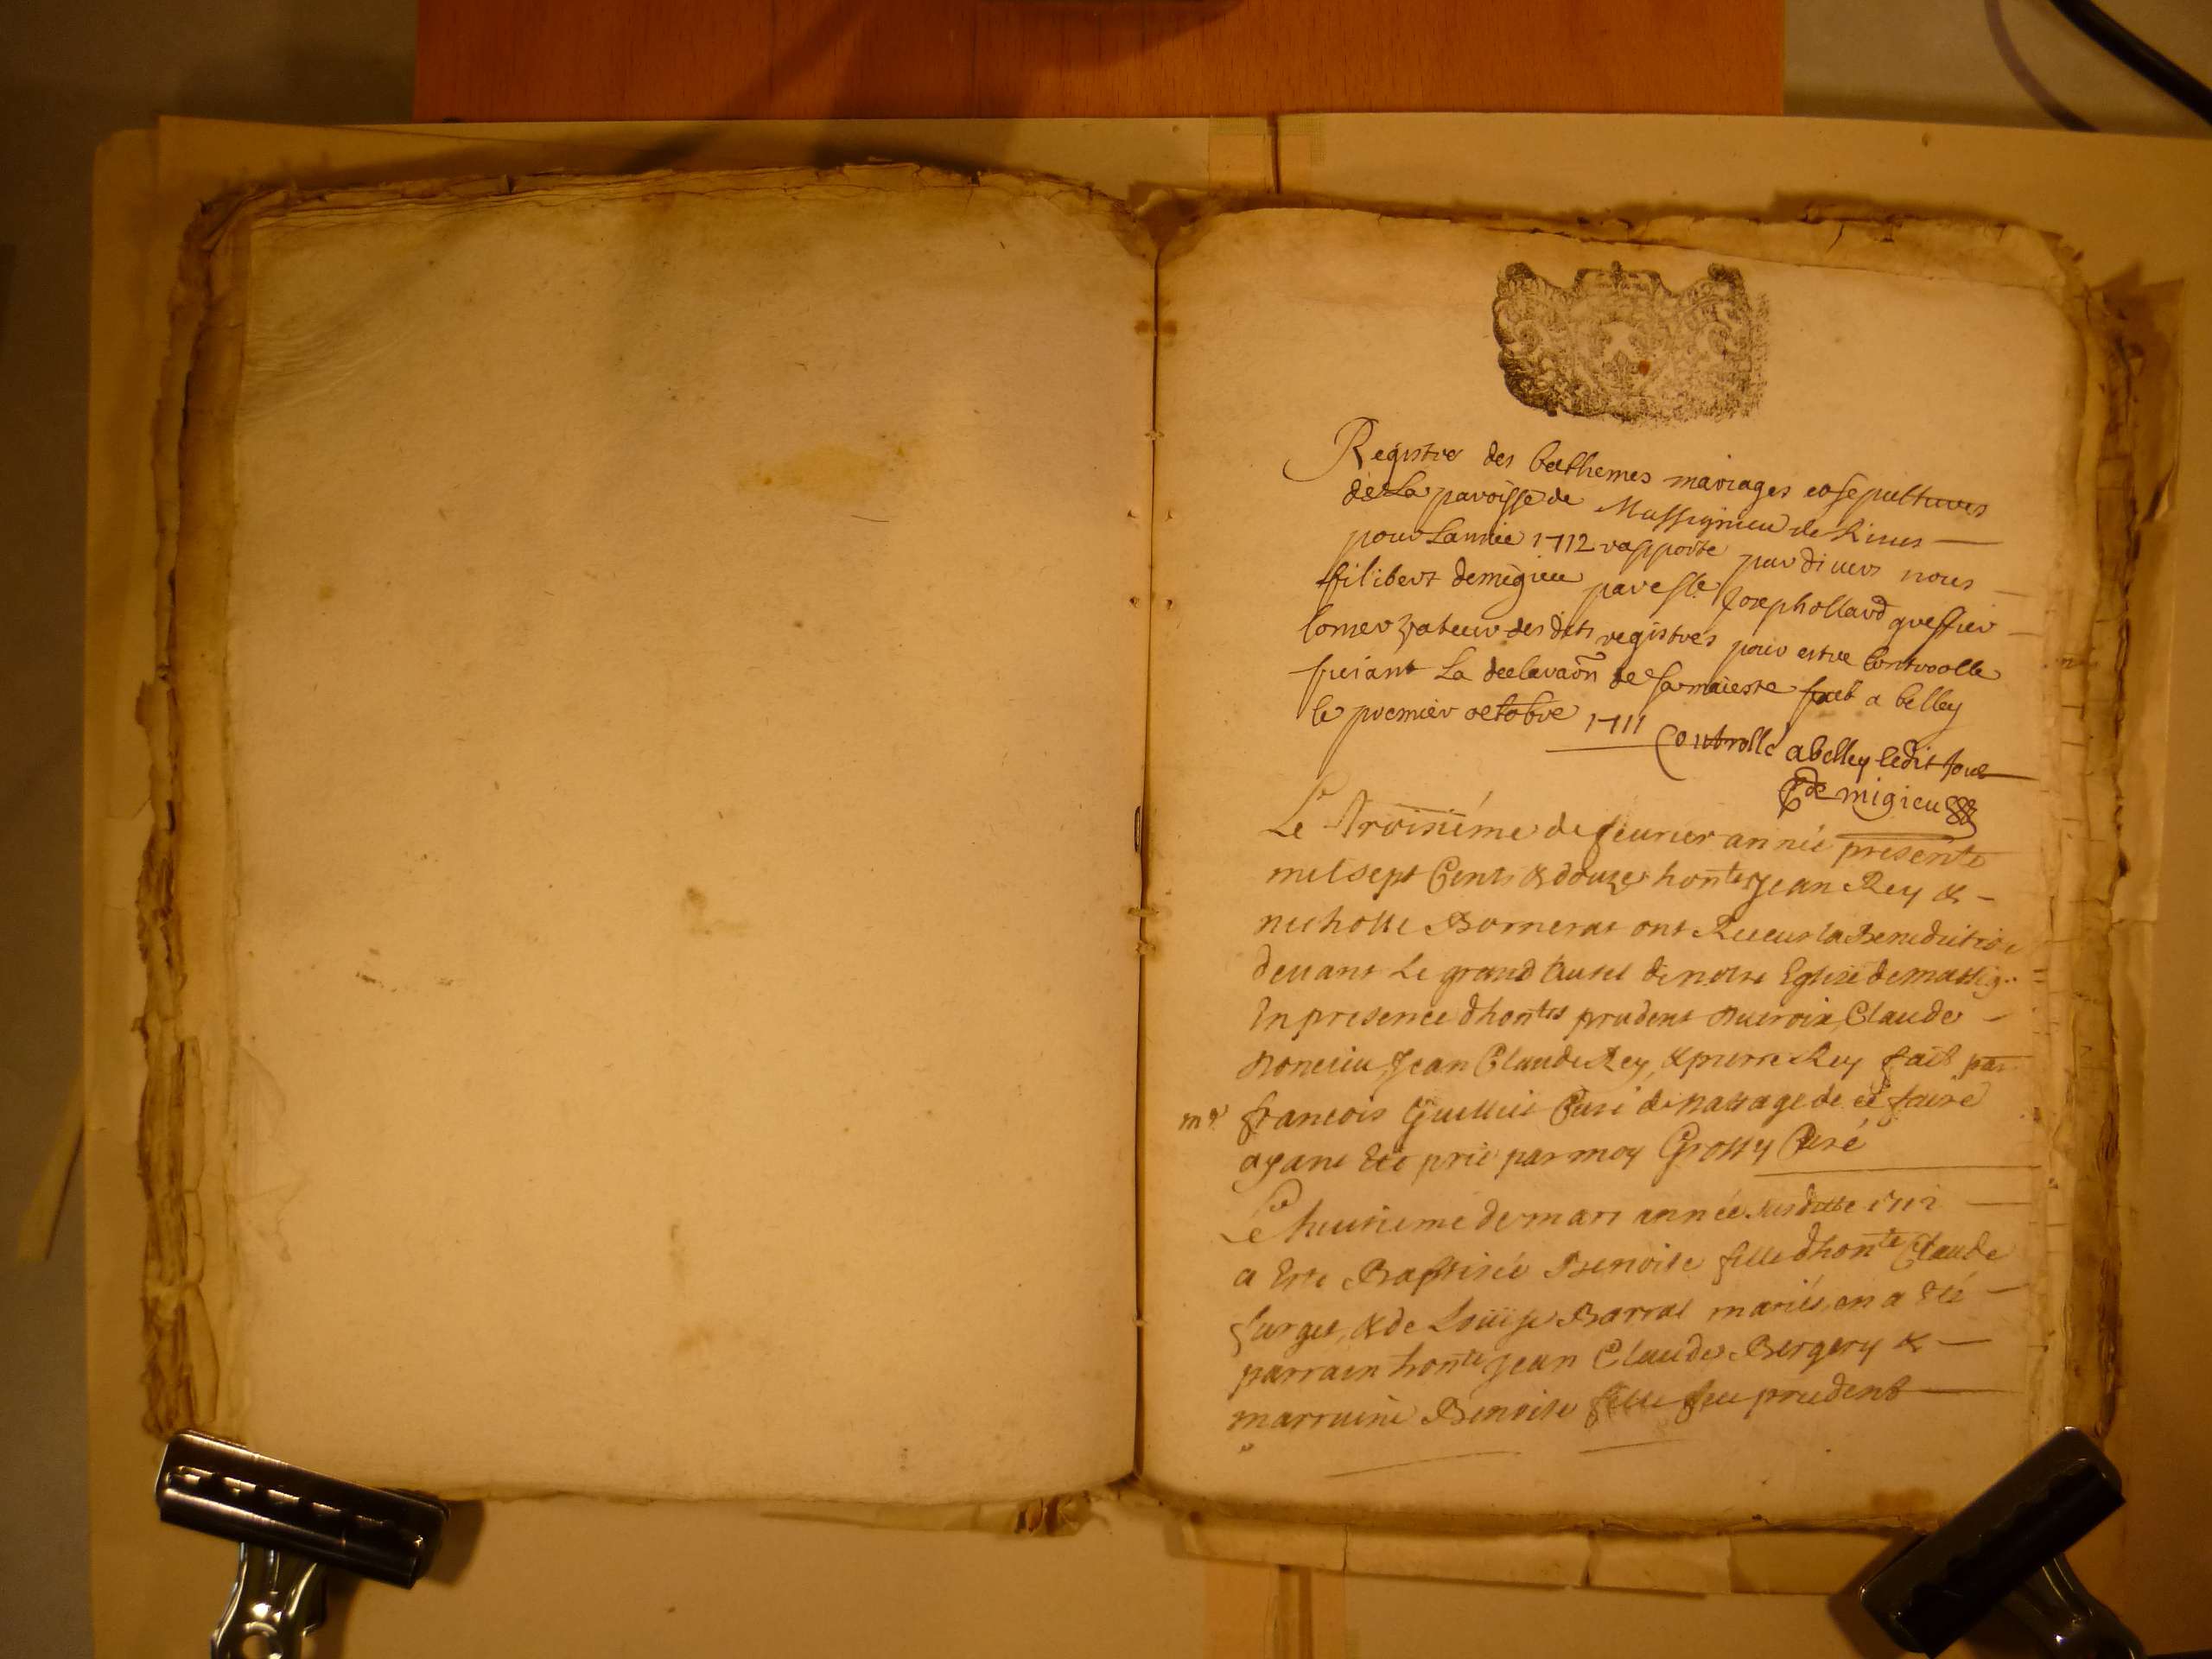 Registre des bathemes mariages et sepultures
de La paroisse de Massignieu de Rives
pour Lannee 1712 rapporte par divers nous
filibert demigieu par Joseph ollard greffier
Conservateur des dits registres pour estre Controolle
suivant La declaraon de sa maieste fait a belley
le premier octobre 1711
Controllé a belley ledit jour
de migieu
Le Troisiéme de feurier année presente
mil sept Cents & douze hontes Jean Rey &
ont Receus la Benediction
deuant Le grand Autel de notre Eglise de massig..
En presence dhontes prudent Claude
Jean Claude Rey, & pierre Rey fait par
mre francois Curé de de ce faire
ayant Eté prié par moy Grossy Curé
Le huitieme de mars année susditte 1712
a Eté Baptisée Benoite fille dhonte Claude
& de Loüise Barral mariés, en a Eté
parrain honte Jean Claude Bergery &
marraine Benoite fille feu prudent